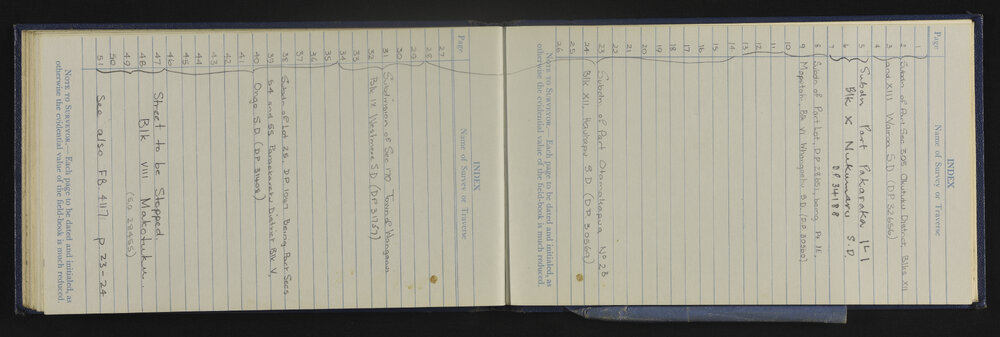 INDEX
Page Name of Survey or Traverse
1
2 Subdn of Part Sec 308 Okutuku District, Blks XII
3 and XIII Wairoa S.D (DP 32656)
4
5 Subdn Part Pakaraka 1L1
6 Blk X Nukumaru S.D.
7 DP 34188
8 Subdn of Part Lot, D.P. 2865, being Pt
9 Mapotahi, Blk VI Whangaehu S.D. (D.P. 30360)
10
11
12
13
14
15
16
17
18
19
20
21
22
23 Subdn of Part Otamakapua No 2B
24 Blk XII, Hautapu S.D (DP 30569)
25
26
NOTE TO SURVEYOR.—Each page to be dated and initialed, as
otherwise the evidential value of the field-book is much reduced.
INDEX
Page Name of Survey or Traverse
27
28
29
30
31 Subdivision of Sec 170 Town of Wanganui
32 Blk IX Westmere S.D (DP 31737)
33
34
35
36
37
38 Subdn of Lot 28, DP 1087 Being Part Secs
39 54 and 55 Paraekaretu District Blk V
40 Ongo S.D (DP 31408)
41
42
43
44
45
46
47 Street to be Stopped.
48 Blk VIII Makotuku.
49 (S.O. 28455)
50
51 See also FB. 4117 p. 23-24
NOTE TO SURVEYOR.—Each page to be dated and initialed, as
otherwise the evidential value of the field-book is much reduced.